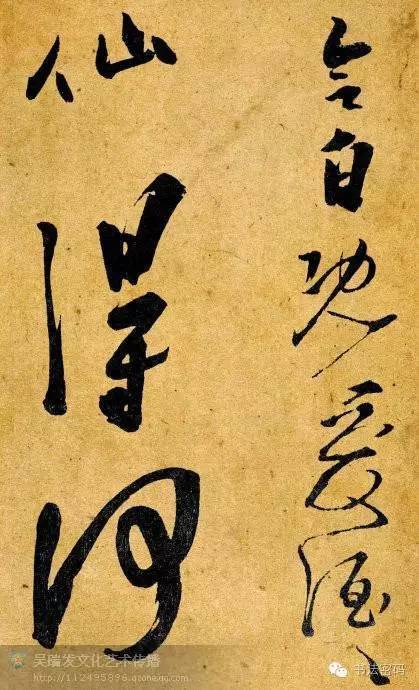 自愛酒
仙得何
吴瑞发文化艺术传播
http://112495896.qzone.qq.com
书法密码